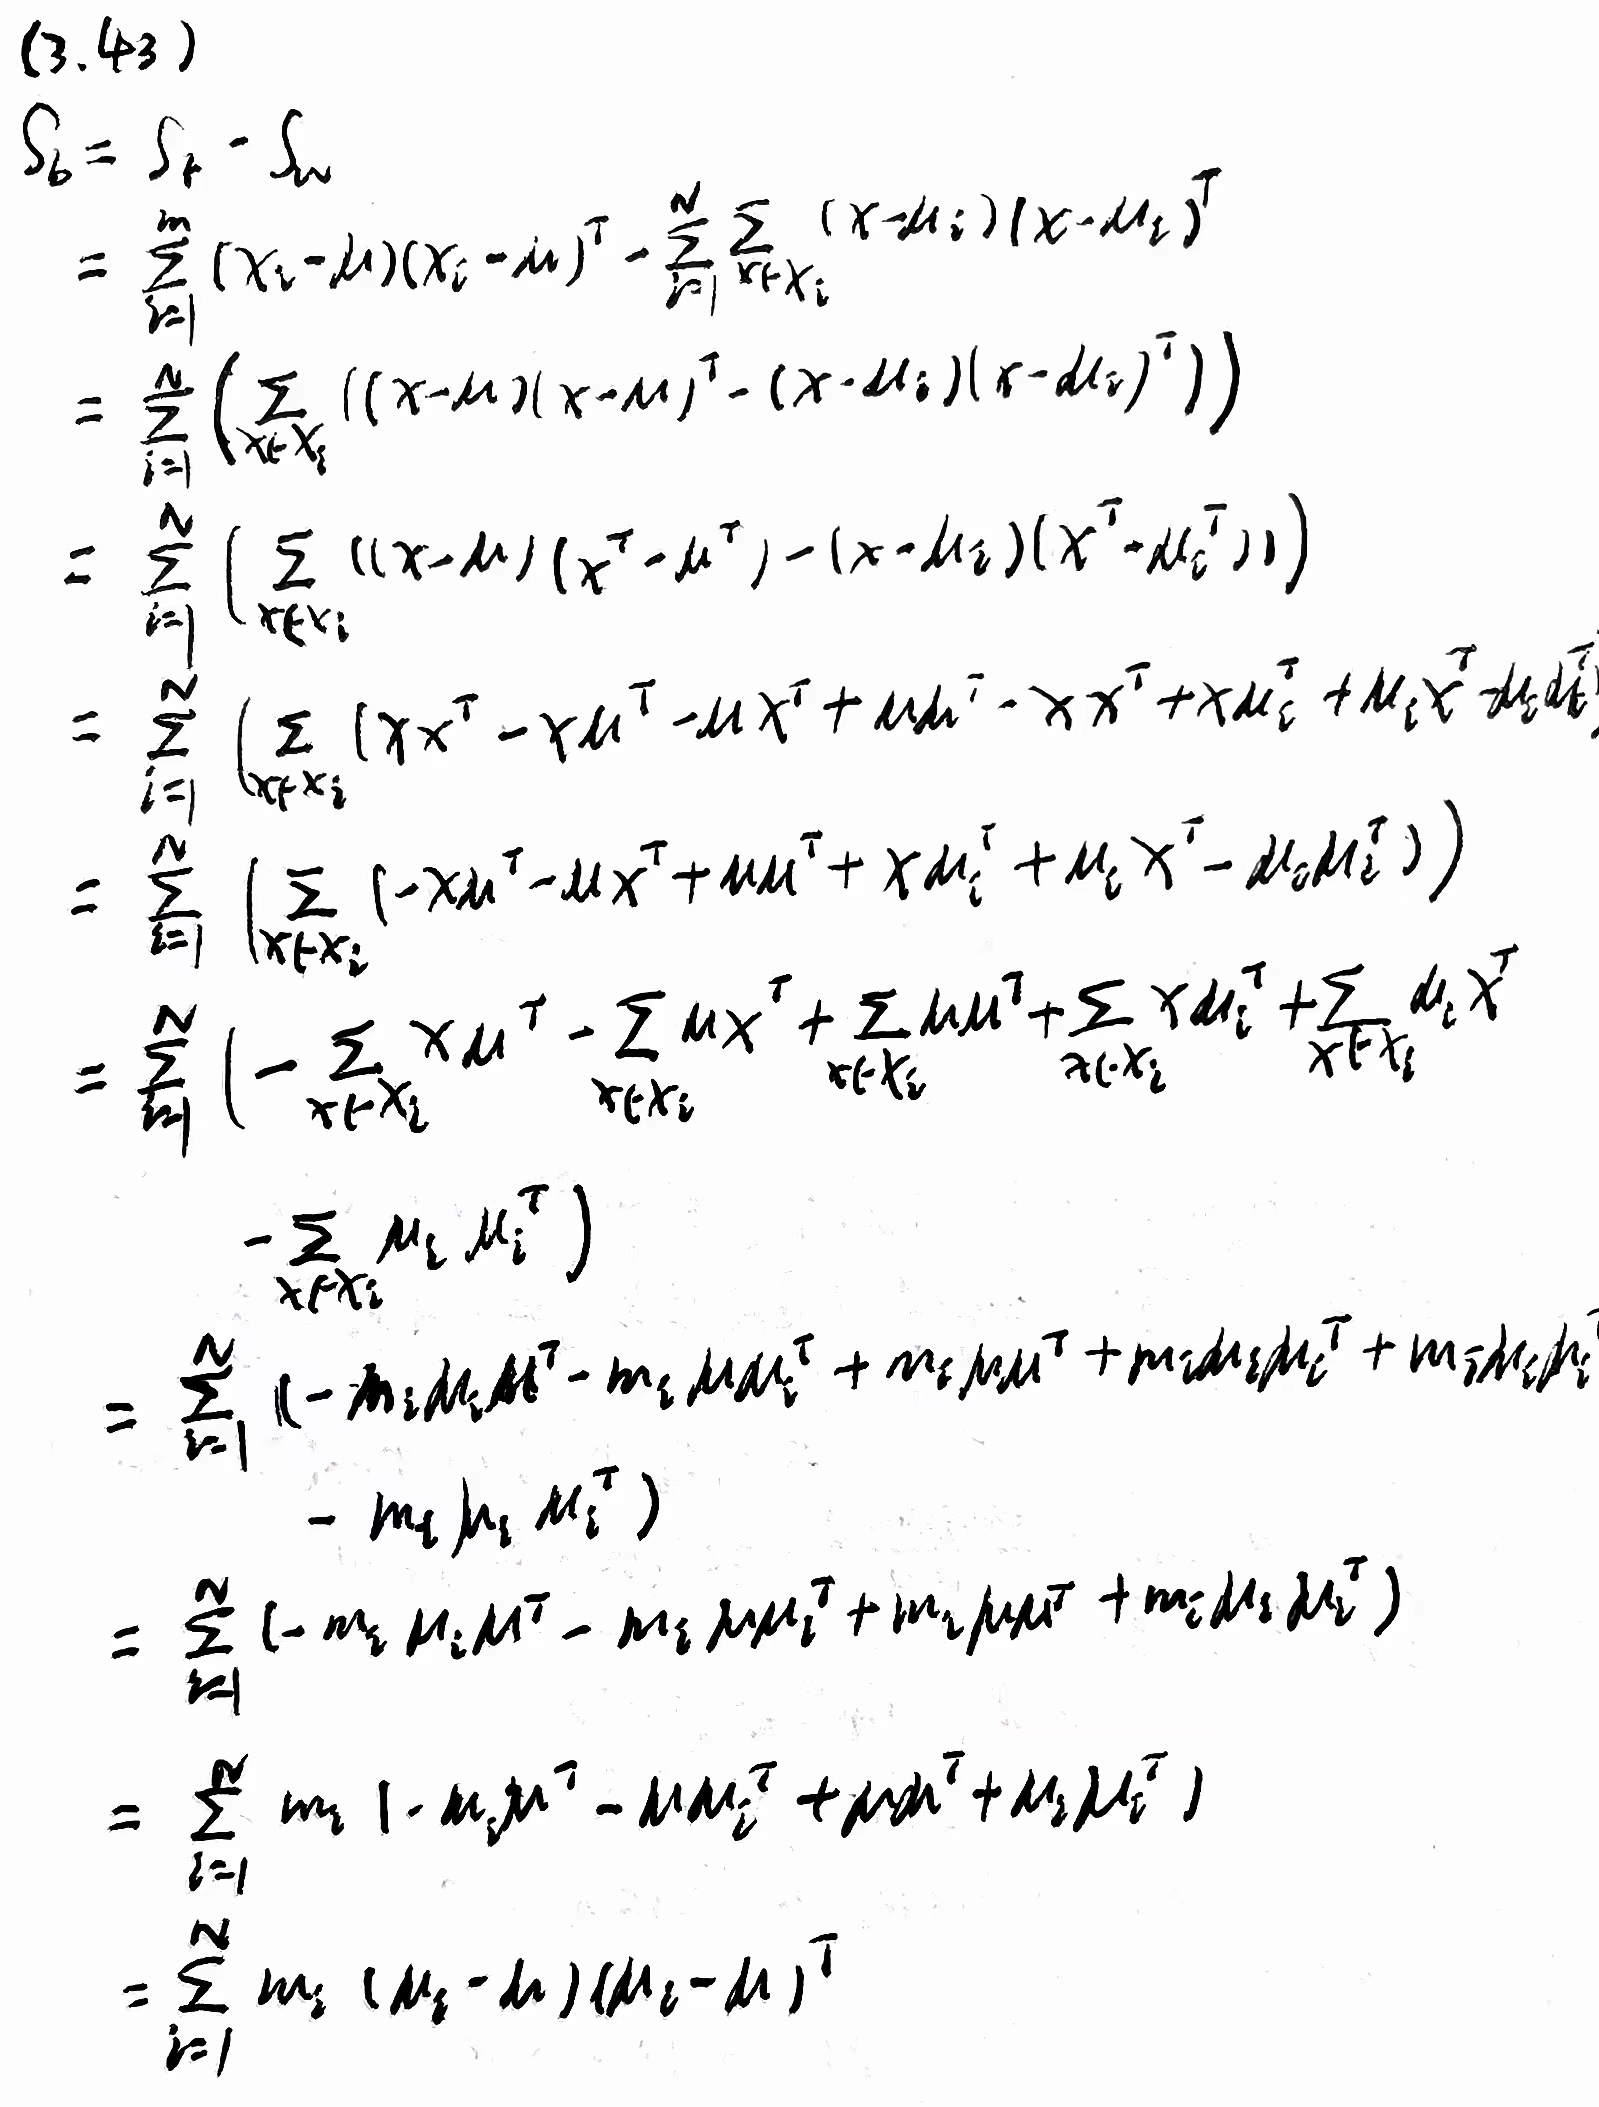 (3.43)
S_b = S_t - S_w
= \sum_{i=1}^{m} (x_i - μ)(x_i - μ)^T - \sum_{i=1}^{N} \sum_{x∈X_i} (x - μ_i)(x - μ_i)^T
= \sum_{i=1}^{N} ( \sum_{x∈X_i} ((x - μ)(x - μ)^T - (x - μ_i)(x - μ_i)^T) )
= \sum_{i=1}^{N} ( \sum_{x∈X_i} ((x - μ)(x^T - μ^T) - (x - μ_i)(x^T - μ_i^T)) )
= \sum_{i=1}^{N} ( \sum_{x∈X_i} (xx^T - xμ^T - μx^T + μμ^T - xx^T + xμ_i^T + μ_i x^T - μ_i μ_i^T)
= \sum_{i=1}^{N} ( \sum_{x∈X_i} (-xμ^T - μx^T + μμ^T + xμ_i^T + μ_i x^T - μ_i μ_i^T) )
= \sum_{i=1}^{N} ( - \sum_{x∈X_i} xμ^T - \sum_{x∈X_i} μx^T + \sum_{x∈X_i} μμ^T + \sum_{x∈X_i} xμ_i^T + \sum_{x∈X_i} μ_i x^T
- \sum_{x∈X_i} μ_i μ_i^T )
= \sum_{i=1}^{N} (-m_i μ_i μ^T - m_i μμ_i^T + m_i μμ^T + m_i μ_i μ_i^T + m_i μ_i μ_i^T
- m_i μ_i μ_i^T )
= \sum_{i=1}^{N} (-m_i μ_i μ^T - m_i μμ_i^T + m_i μμ^T + m_i μ_i μ_i^T )
= \sum_{i=1}^{N} m_i (-μ_i μ^T - μμ_i^T + μμ^T + μ_i μ_i^T )
= \sum_{i=1}^{N} m_i (μ_i - μ)(μ_i - μ)^T